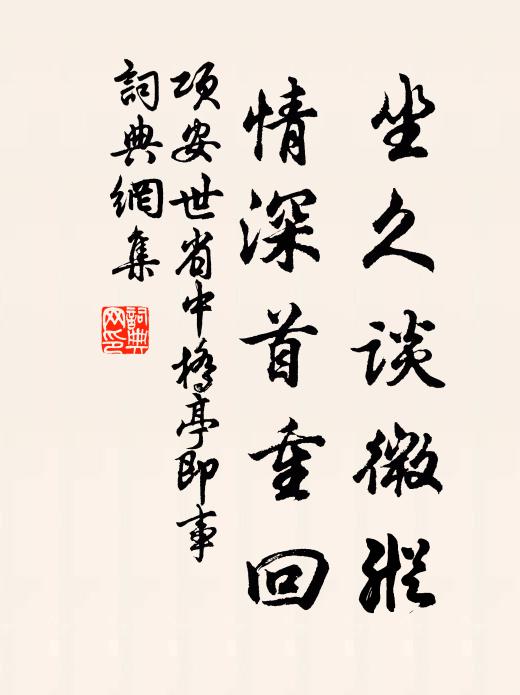 坐久談微縱
情深首重回
項安世省中橋亭即事
詞典網集
詞典网印